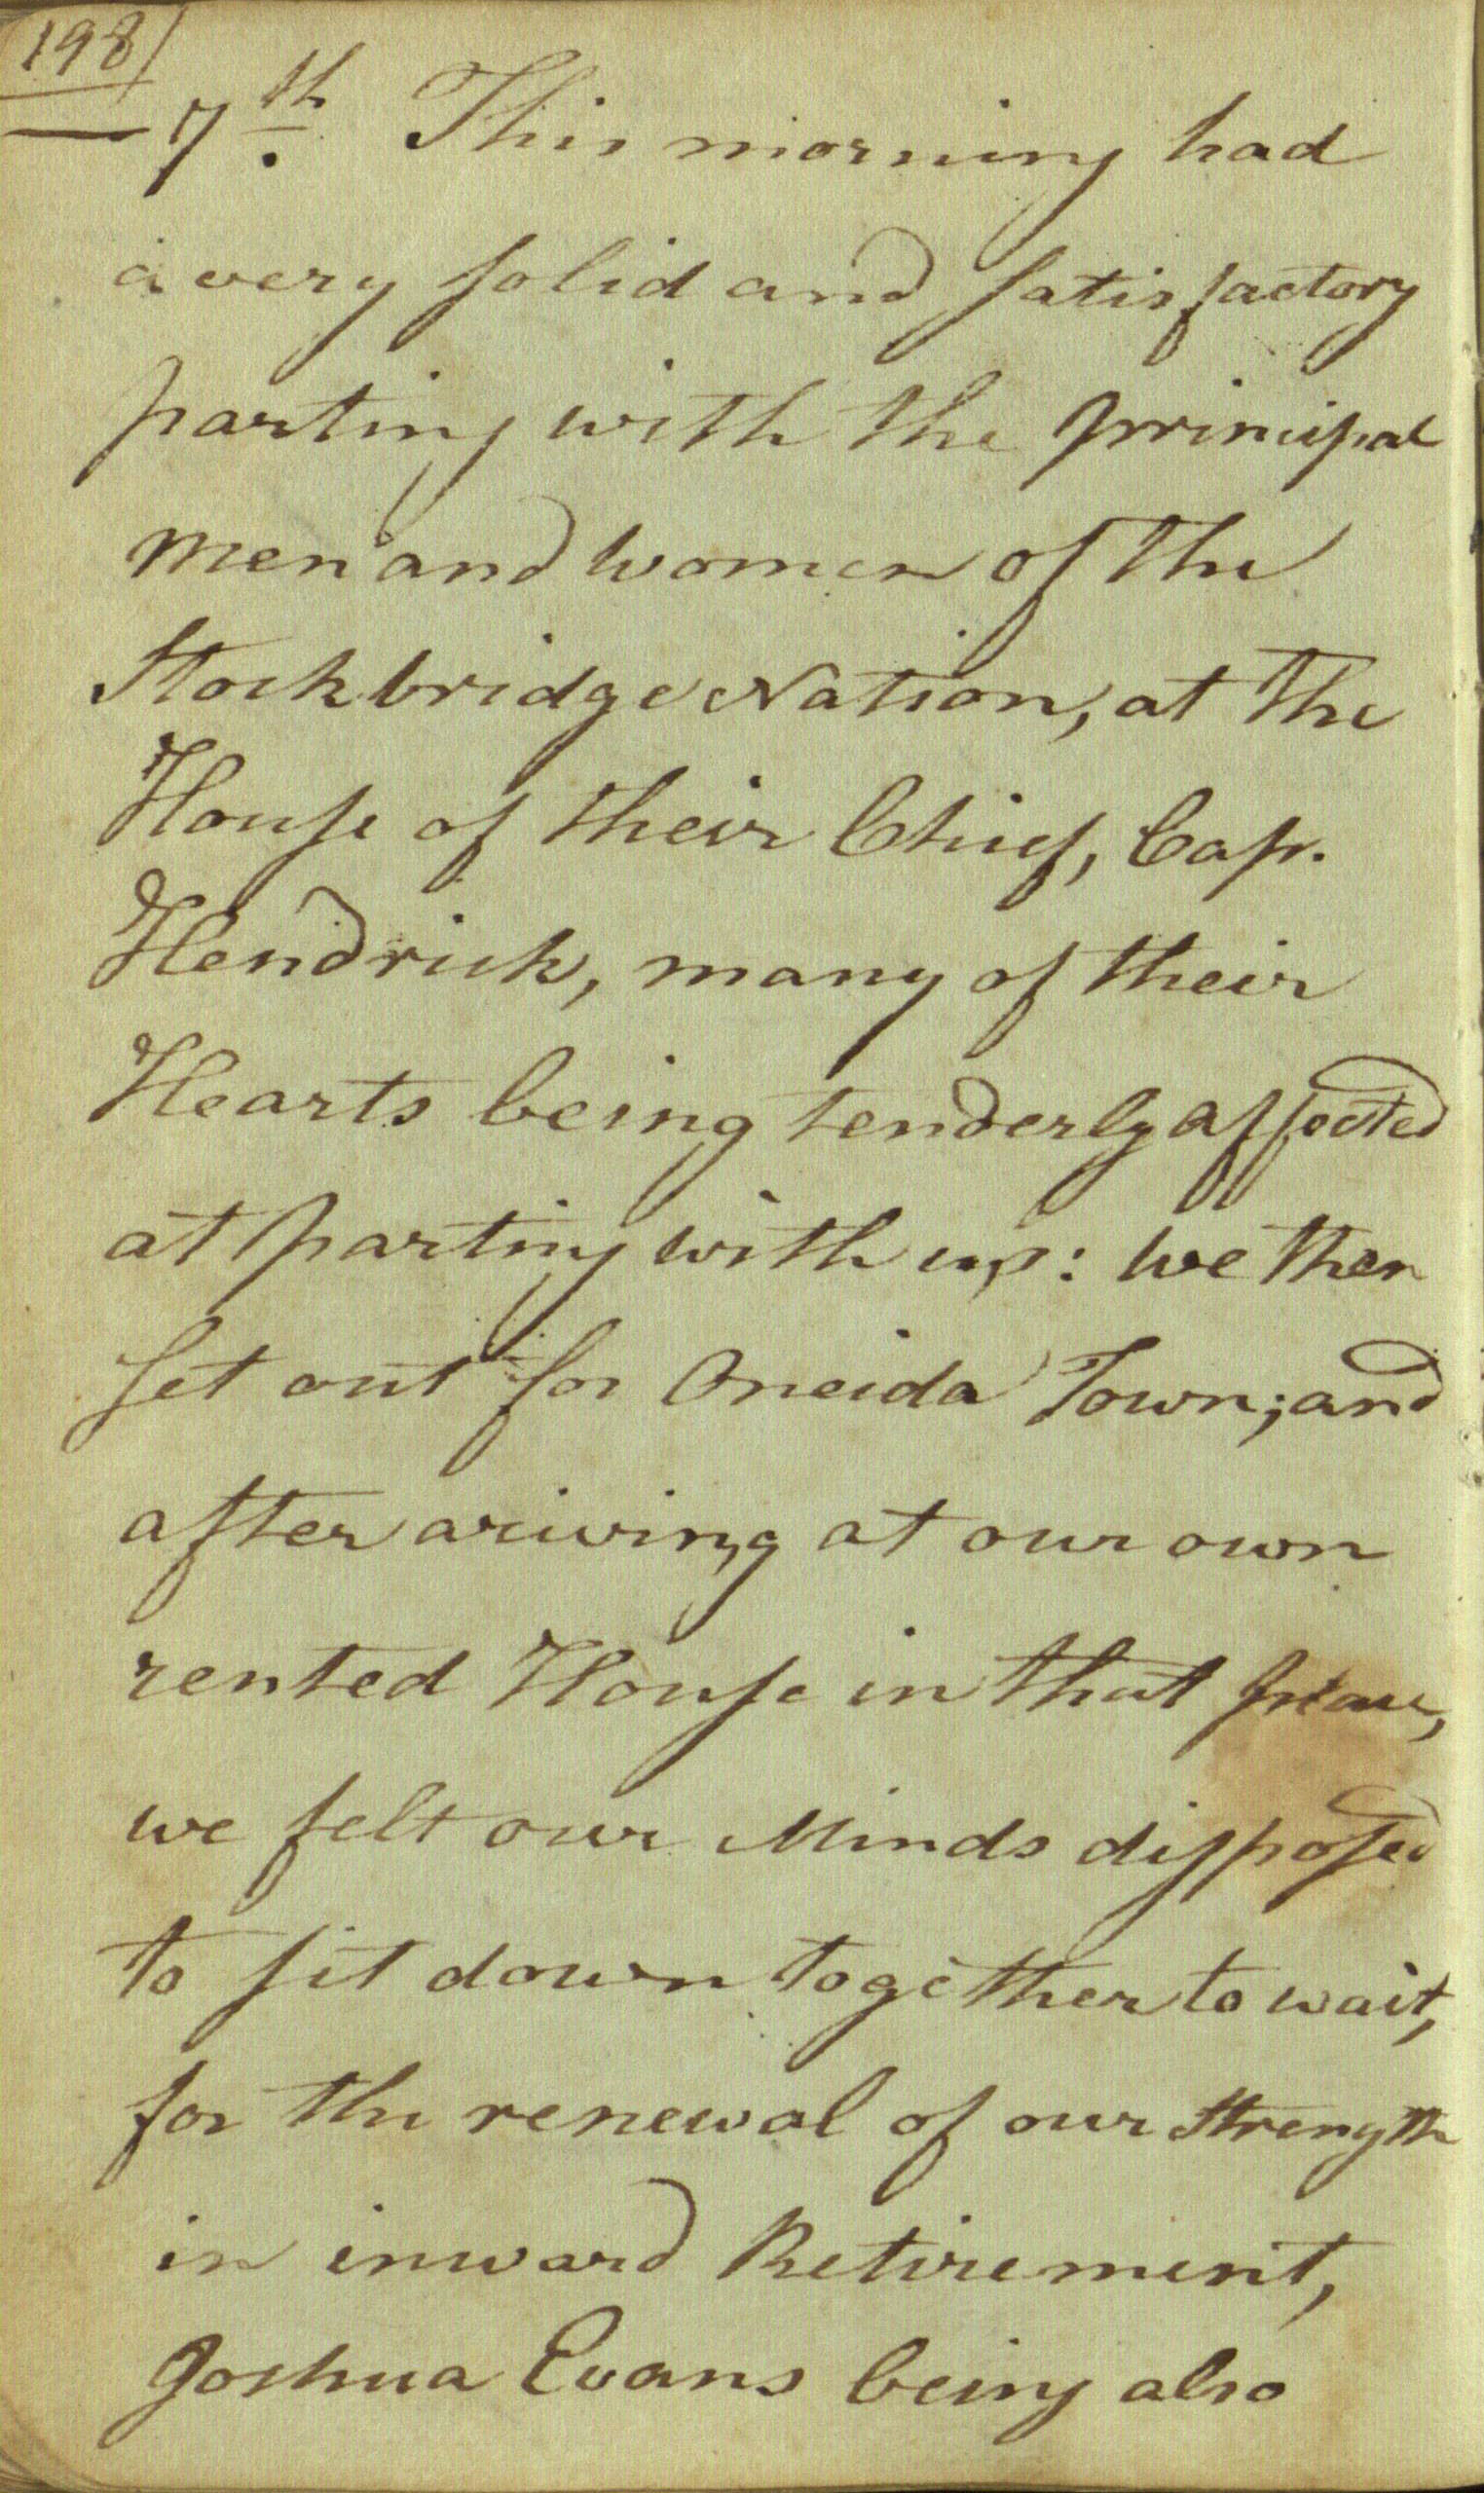 198
— 7th. This morning had
a very solid and satisfactory
parting with the principal
men and women of the
Stockbridge Nation, at the
House of their Chief, Cap.
Hendrick, many of their
Hearts being tenderly affected
at parting with us: we then
set out for Oneida Town; and
after ariving at our own
rented House in that place,
we felt our Minds disposed
to sit down together to wait,
for the renewal of our Strength
in inward Retirement,
Joshua Evans being also